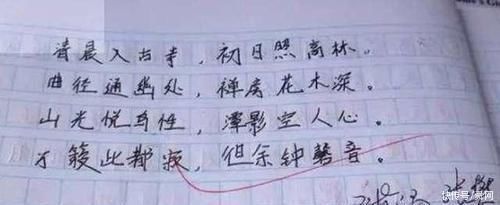 清晨入古寺，初日照高林。
曲径通幽处，禅房花木深。
山光悦鸟性，潭影空人心。
万籁此都寂，但余钟磬音。
快传号/彩网